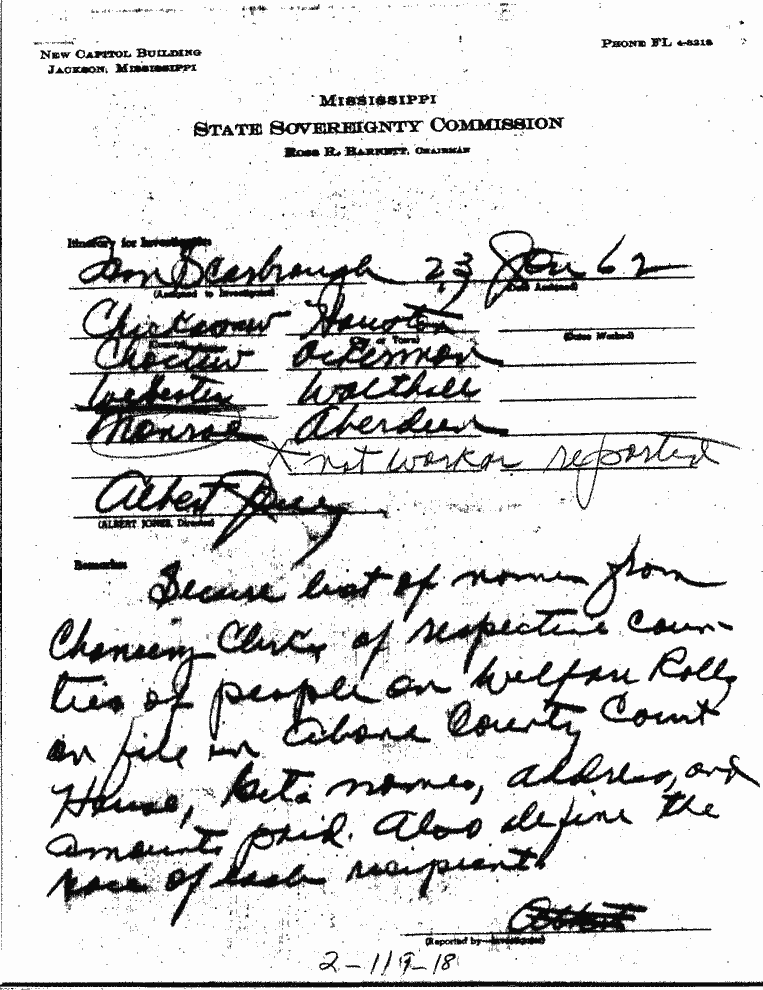 NEW CAPITOL BUILDING
JACKSON, MISSISSIPPI
PHONE FL 4-3218
MISSISSIPPI
STATE SOVEREIGNTY COMMISSION
ROSS R. BARNETT, CHAIRMAN
Itinerary for Investigation
Tom Scarbrough 23 Jan 62
(Assigned to Investigate) (Date Assigned)
Chickasaw Houston
(City or Town) (Dates Worked)
Choctaw Ackerman
Webster Walthall
Monroe Aberdeen
X not work or reported
Albert Jones
(ALBERT JONES, Director)
Remarks
Secure list of names from
Chancery Clerks of respective coun-
ties of people on Welfare Rolls
on file in above County Court
House, Get names, address, and
amounts paid. Also define the
race of each recipient.
(Reported by Investigator)
2-119-18